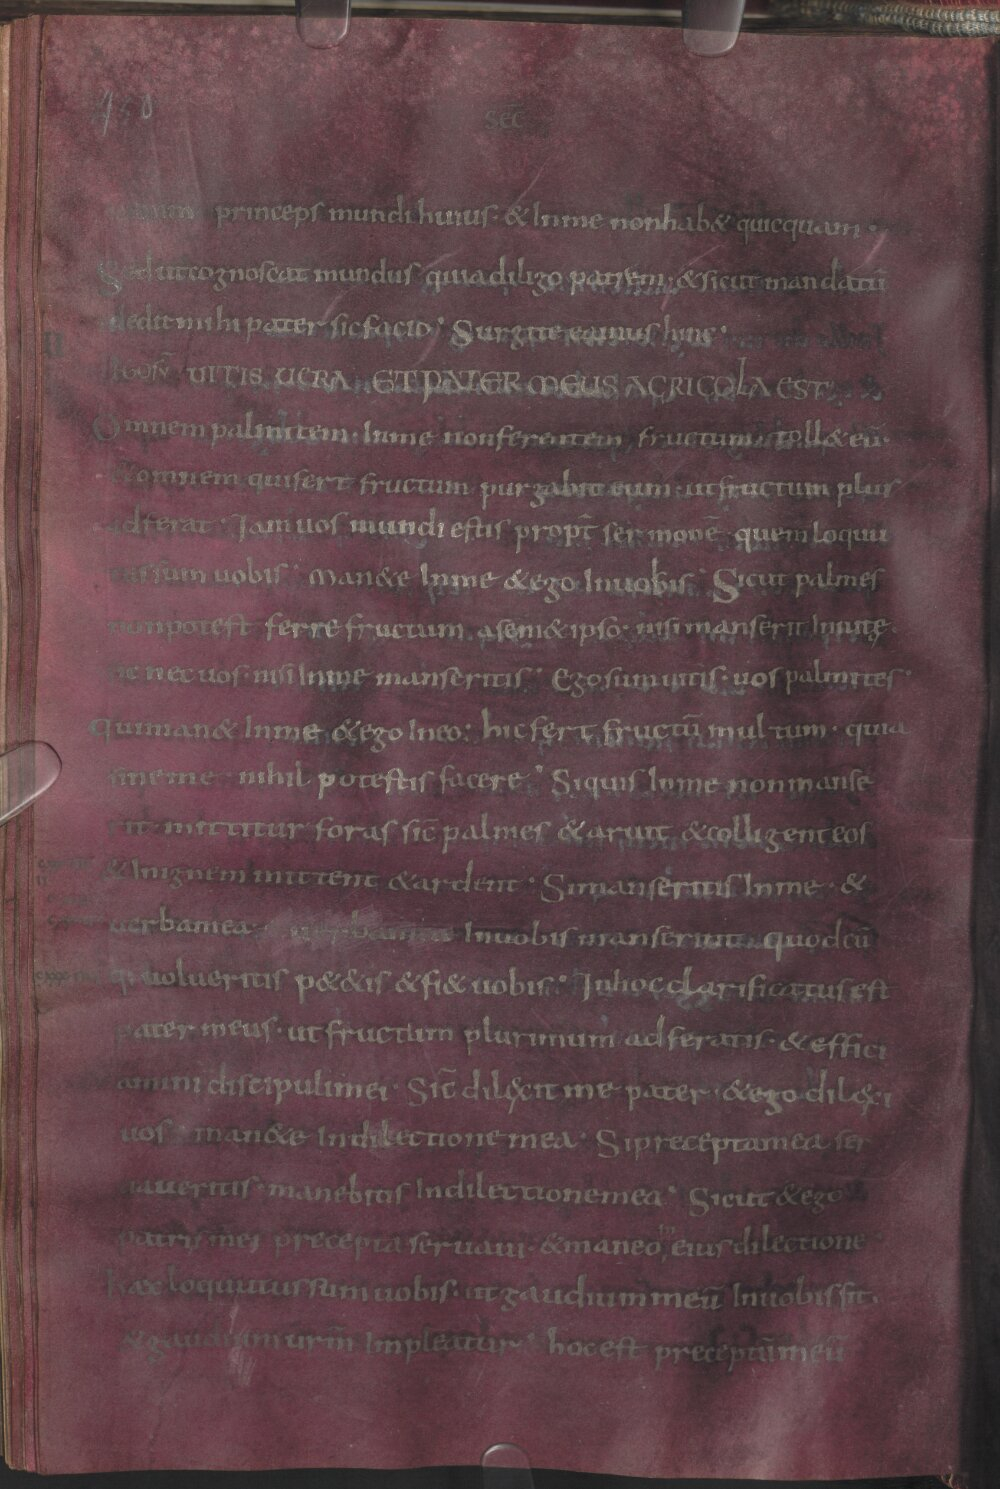 450
SEC̄
princeps mundi huius· & Inme nonhab& quicquam·
sed utcognoscat mundus quiadiligo patrem· &sicut mandatū
dedit mihi pater sicfacio· Surgite eamus hinc·
UITIS UERA ET PATER MEUS AGRICOLA EST
Omnem palmitem· Inme nonferentem fructum· toll& eū·
&omnem quifert fructum purgabit eum· utfructum plus
adferat· Iam uos mundi estis propt̄ sermonē quem loquu
tussum uobis· Man&e Inme &ego Inuobis· Sicut palmes
nonpotest ferre fructum asem&ipso· nisi manserit Inuite·
sic nec uos· nisi Inme manseritis· Ego sum uitis· uos palmites·
Quiman& Inme &ego Ineo· hic fert fructū multum· quia
sineme nihil potestis facere· Siquis Inme nonmanse
rit· mittitur foras sic̄ palmes &aruit &colligent eos
&Inignem mittent &ardent· Simanseritis Inme· &
uerbamea Inuobis manserint quodcū
q; uolueritis p&&is &fi& uobis· Inhoc clarificatus est
pater meus· ut fructum plurimum adferatis· &effici
amini discipulimei· Sic̄ dilexit me pater· &ego dilexi
uos· man&e Indilectione mea· Si preceptamea ser
uaueritis· manebitis Indilectionemea· Sicut &ego
patris mei precepta seruaui· &maneo in eius dilectione·
Haec loquutussum uobis· ut gaudium meū Inuobis sit·
&gaudium urm̄ Impleatur· hoc est preceptū meū